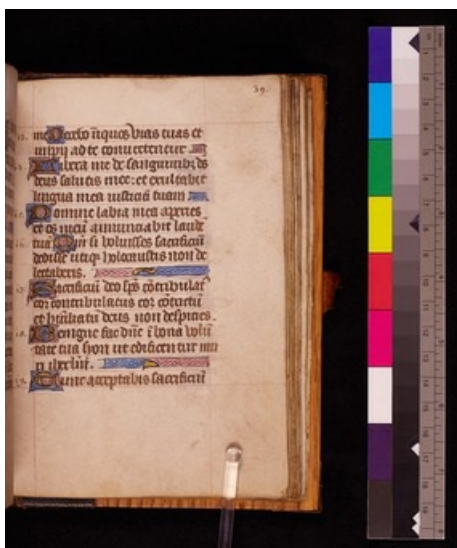 39.
me Docebo iniquos vias tuas et
impii ad te convertentur
Libera me de sanguinibus ds
deus salutis mee: et exultabit
lingua mea iusticiā tuam
Domine labia mea aperies
et os meū annunciabit laudē
tuā Qm̄ si voluisses sacrificiū
dedisse utiqȝ holocaustis non de
lectaberis.
Sacrificiū deo sp̄s cōtribulat
cor contribulatus cor cōtritū
et hūiliatū deus non despicies.
Benigne fac dn̄e ī bona volūi
tate tua syon ut edificentur mu
ri iherl̄m.
Tunc acceptabis sacrificiū